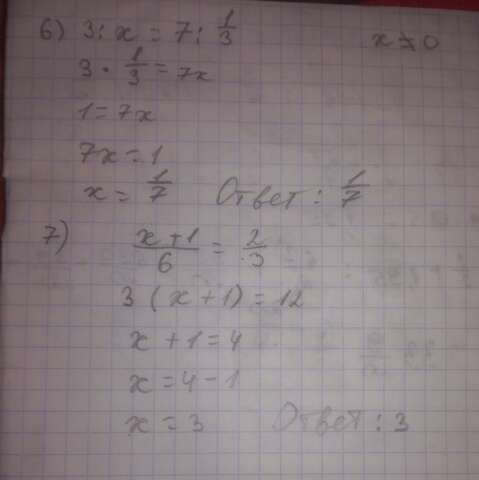 6) 3 : x = 7 : 1/3 x ≠ 0
3 · 1/3 = 7x
1 = 7x
7x = 1
x = 1/7 Ответ : 1/7
7) (x + 1)/6 = 2/3
3 (x + 1) = 12
x + 1 = 4
x = 4 - 1
x = 3 Ответ : 3